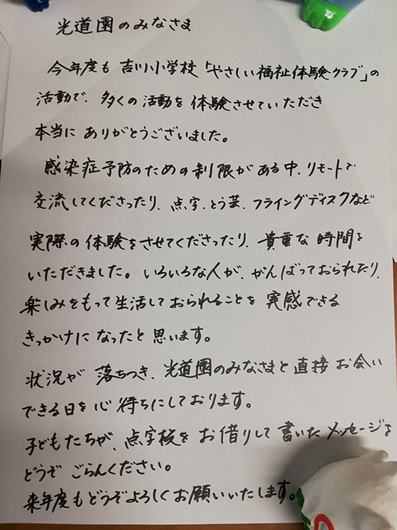 光道園のみなさま
今年度も 吉川小学校「やさしい福祉体験クラブ」の
活動で、多くの活動を体験させていただき
本当に ありがとうございました。
感染症予防のための制限がある中、リモートで
交流してくださったり、点字、とう芸、フライングディスクなど
実際の体験をさせてくださったり、貴重な時間を
いただきました。いろいろな人が、がんばっておられたり、
楽しみをもって生活しておられることを 実感できる
きっかけになったと思います。
状況が 落ちつき、光道園のみなさまと直接お会い
できる日を心待ちにしております。
子どもたちが、点字板をお借りして書いたメッセージを
どうぞ ごらんください。
来年度もどうぞよろしくお願いいたします。